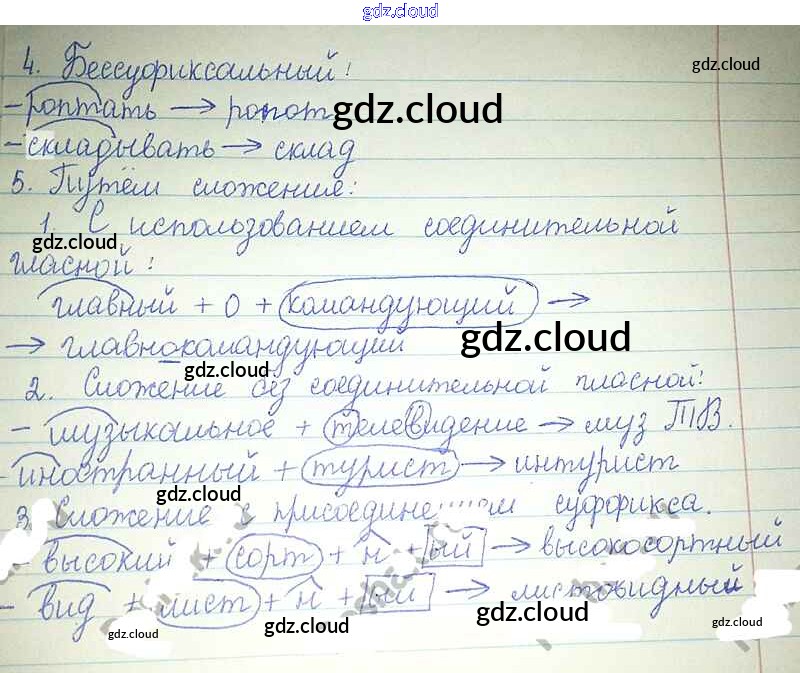 gdz.cloud
4. Бессуфиксальный:
gdz.cloud
- роптать → ропот
gdz.cloud
- складывать → склад
5. Путём сложения:
1. С использованием соединительной
gdz.cloud
гласной:
главный + о + командующий →
→ главнокомандующий
gdz.cloud
gdz.cloud
2. Сложение без соединительной гласной:
- музыкальное + телевидение → муз ТВ.
- иностранный + турист → интурист
gdz.cloud
3. Сложение с суффикса.
- высокий + сорт + н + ый → высокосортный
- вид + лист + н + ый → листовидный
gdz.cloud
gdz.cloud
gdz.cloud
gdz.cloud